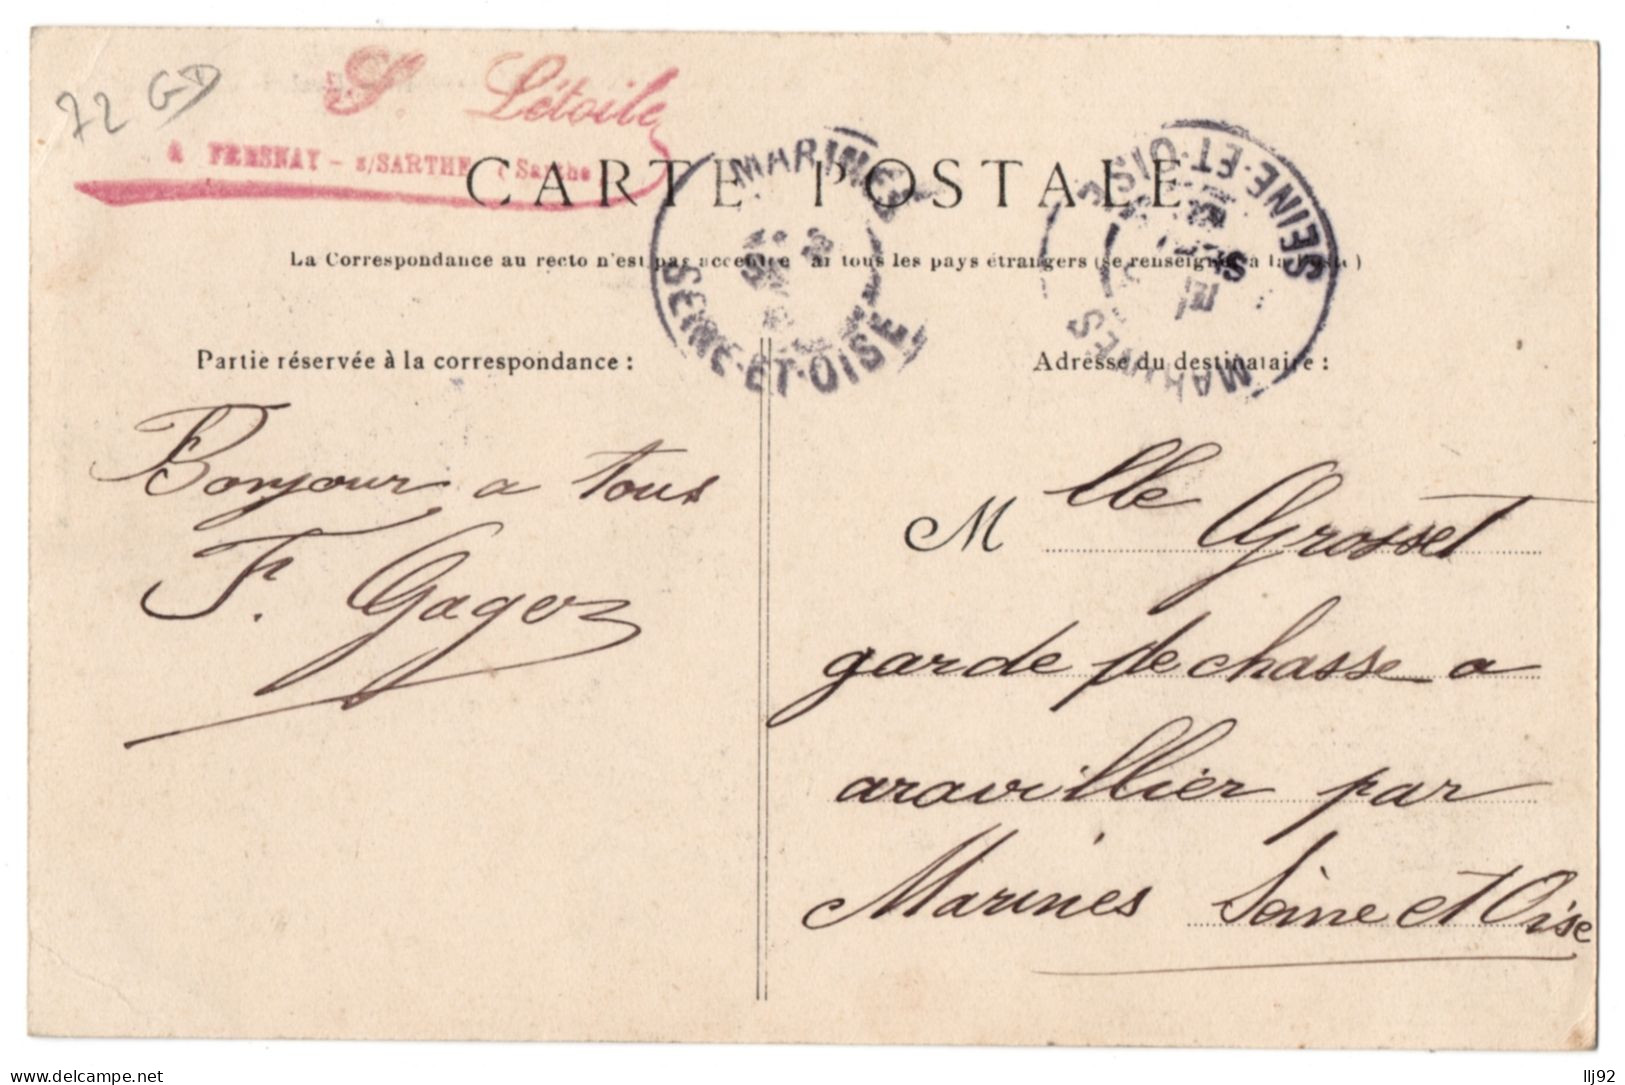 72 GD
S. Létoile
A FRESNAY - s/SARTHE (Sarthe)
CARTE POSTALE
MARINES
SEINE-ET-OISE
MARINES
SEINE-ET-OISE
La Correspondance au recto n'est pas acceptée par tous les pays étrangers (se renseigner à la Poste)
Partie réservée à la correspondance :
Bonjour a tous
F. Gagez
Adresse du destinataire :
Mlle Grosset
garde de chasse a
aravillier par
Marines Seine et Oise
delcampe.net
llj92